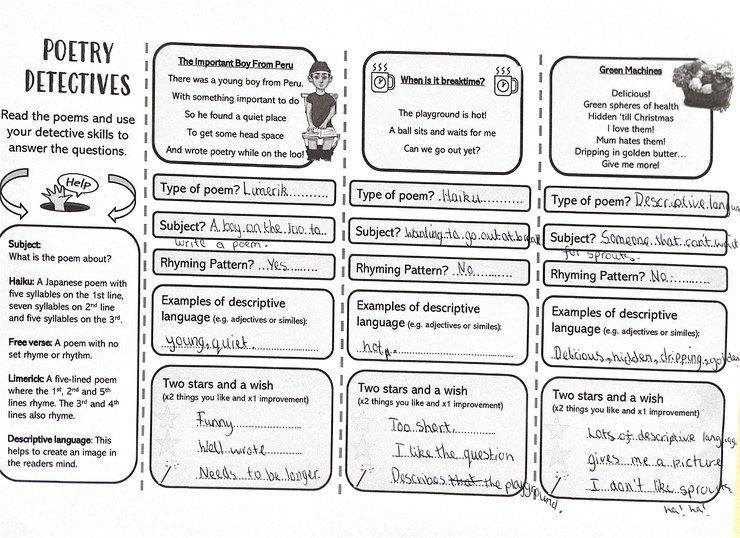 POETRY
DETECTIVES
Read the poems and use
your detective skills to
answer the questions.
Help
Subject:
What is the poem about?
Haiku: A Japanese poem with
five syllables on the 1st line,
seven syllables on 2nd line
and five syllables on the 3rd.
Free verse: A poem with no
set rhyme or rhythm.
Limerick: A five-lined poem
where the 1st, 2nd and 5th
lines rhyme. The 3rd and 4th
lines also rhyme.
Descriptive language: This
helps to create an image in
the readers mind.
The Important Boy From Peru
There was a young boy from Peru.
With something important to do
So he found a quiet place
To get some head space
And wrote poetry while on the loo!
Type of poem? Limerik..........
Subject? A boy on the loo to..
write a poem.
Rhyming Pattern? ...Yes.........
Examples of descriptive
language (e.g. adjectives or similes):
young, quiet.
Two stars and a wish
(x2 things you like and x1 improvement)
Funny
Well wrote
Needs to be longer.
When is it breaktime?
The playground is hot!
A ball sits and waits for me
Can we go out yet?
Type of poem? Haiku
Subject? Wanting to go out at break
Rhyming Pattern? No
Examples of descriptive
language (e.g. adjectives or similes):
hot
Two stars and a wish
(x2 things you like and x1 improvement)
Too short.
I like the question
Describes that the playground.
Green Machines
Delicious!
Green spheres of health
Hidden 'till Christmas
I love them!
Mum hates them!
Dripping in golden butter...
Give me more!
Type of poem? Descriptive langua
Subject? Someone that can't wait
for sprouts.
Rhyming Pattern? No
Examples of descriptive
language (e.g. adjectives or similes):
Delicious, hidden, dripping, golden
Two stars and a wish
(x2 things you like and x1 improvement)
Lots of descriptive
gives me a picture
I don't like sprouts
ha! ha!